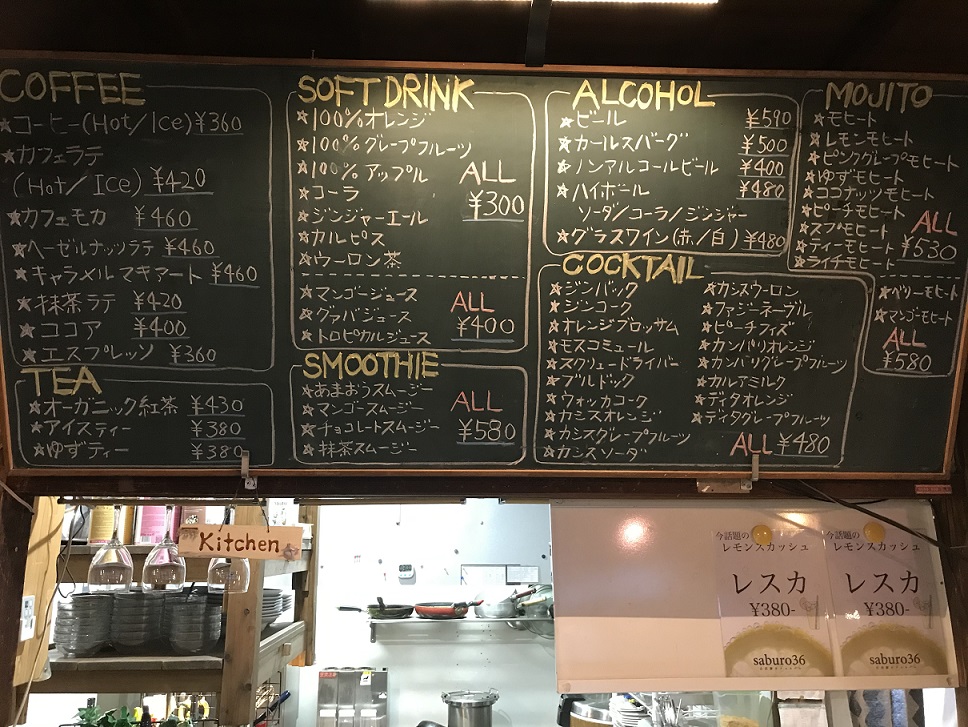 COFFEE
★コーヒー(Hot/Ice)¥360
★カフェラテ
(Hot/Ice) ¥420
★カフェモカ ¥460
★ヘーゼルナッツラテ ¥460
★キャラメルマキアート ¥460
★抹茶ラテ ¥420
★ココア ¥400
★エスプレッソ ¥360
TEA
★オーガニック紅茶 ¥430
★アイスティー ¥380
★ゆずティー ¥380
SOFT DRINK
★100%オレンジ
★100%グレープフルーツ
★100%アップル
★コーラ
★ジンジャーエール
★カルピス
★ウーロン茶
ALL
¥300
★マンゴージュース
★グァバジュース
★トロピカルジュース
ALL
¥400
SMOOTHIE
★あまおうスムージー
★マンゴースムージー
★チョコレートスムージー
★抹茶スムージー
ALL
¥580
ALCOHOL
★ビール ¥590
★カールスバーグ ¥500
★ノンアルコールビール ¥400
★ハイボール ¥480
ソーダ/コーラ/ジンジャー
★グラスワイン(赤/白) ¥480
COCKTAIL
★ジンバック
★ジンコーク
★オレンジブロッサム
★モスコミュール
★スクリュードライバー
★ブルドック
★ウォッカコーク
★カシスオレンジ
★カシスグレープフルーツ
★カシスソーダ
★カシスウーロン
★ファジーネーブル
★ピーチフィズ
★カンパリオレンジ
★カンパリグレープフルーツ
★カルアミルク
★ディタオレンジ
★ディタグレープフルーツ
ALL ¥480
MOJITO
★モヒート
★レモンモヒート
★ピンクグレープモヒート
★ゆずモヒート
★ココナッツモヒート
★ピーチモヒート
★ティーモヒート
★ライチモヒート
ALL
¥530
★ベリーモヒート
★マンゴーモヒート
ALL
¥580
Kitchen
今話題の
レモンスカッシュ
レスカ
¥380-
saburo36
今話題の
レモンスカッシュ
レスカ
¥380-
saburo36